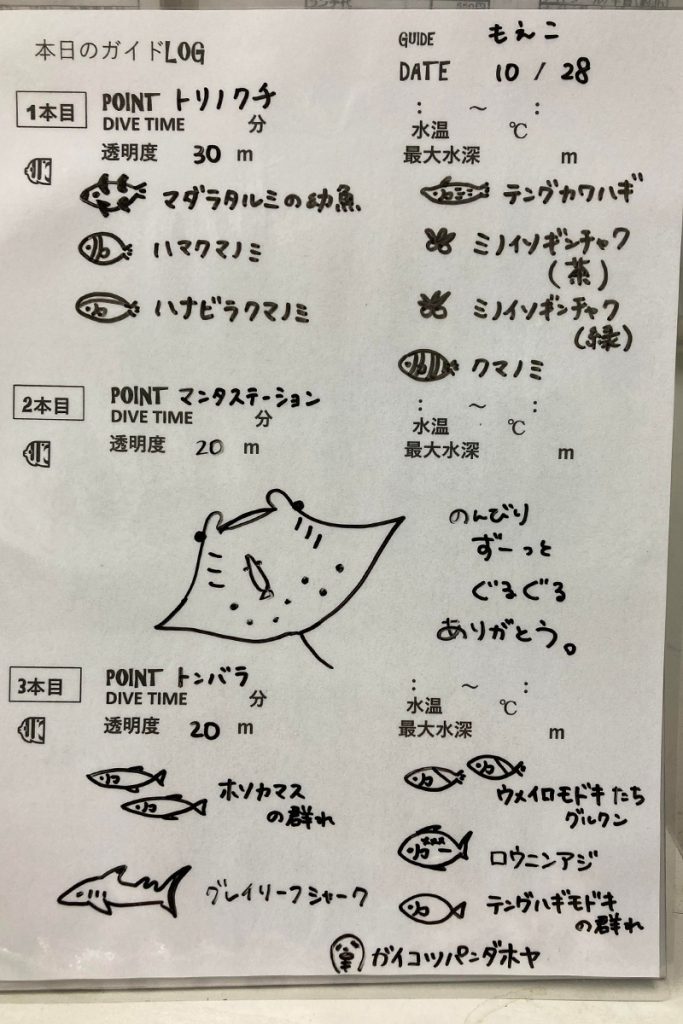 本日のガイドLOG
GUIDE もえこ
DATE 10 / 28
1本目
POINT トリノクチ
DIVE TIME 分
: ～ :
水温 ℃
透明度 30 m
最大水深 m
マダラタルミの幼魚
ハマクマノミ
ハナビラクマノミ
テングカワハギ
ミノイソギンチャク
(茶)
ミノイソギンチャク
(緑)
クマノミ
2本目
POINT マンタステーション
DIVE TIME 分
: ～ :
水温 ℃
透明度 20 m
最大水深 m
のんびり
ずーっと
ぐるぐる
ありがとう。
3本目
POINT トンバラ
DIVE TIME 分
: ～ :
水温 ℃
透明度 20 m
最大水深 m
ホソカマス
の群れ
グレイリーフシャーク
ウメイロモドキたち
グルクン
ロウニンアジ
テングハギモドキ
の群れ
ガイコツパンダホヤ